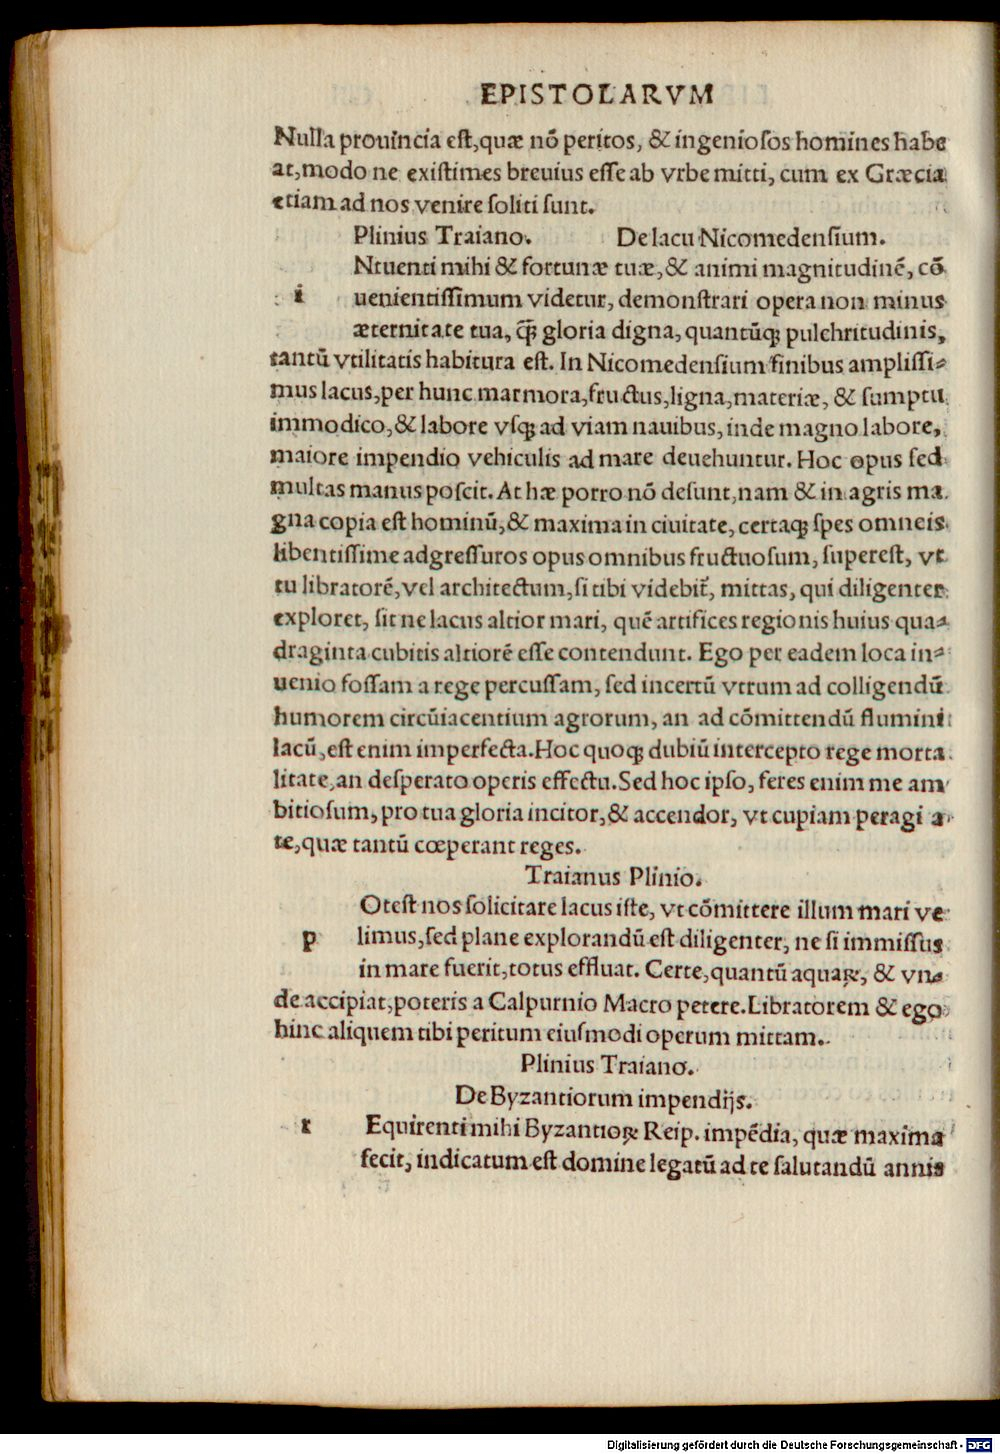 EPISTOLARVM
Nulla prouincia est,quæ nō peritos, & ingeniosos homines habe
at,modo ne existimes breuius esse ab vrbe mitti, cum ex Græcia
etiam ad nos venire soliti sunt.
Plinius Traiano. De lacu Nicomedensium.
Ntuenti mihi & fortunæ tuæ,& animi magnitudinē, cō
i uenientissimum videtur, demonstrari opera non minus
æternitate tua, q̄ȝ gloria digna, quantūqȝ pulchritudinis,
tantū vtilitatis habitura est. In Nicomedensium finibus amplissi⸗
mus lacus,per hunc marmora,fructus,ligna,materiæ, & sumptu
immodico,& labore vsqȝ ad viam nauibus, inde magno labore,
maiore impendio vehiculis ad mare deuehuntur. Hoc opus sed
multas manus poscit. At hæ porro nō desunt,nam & in agris ma
gna copia est hominū,& maxima in ciuitate, certaqȝ spes omneis
libentissime adgressuros opus omnibus fructuosum, superest, vt
tu libratorē,vel architectum,si tibi videbit᷑, mittas, qui diligenter
exploret, sit ne lacus altior mari, quē artifices regionis huius qua⸗
draginta cubitis altiorē esse contendunt. Ego per eadem loca in⸗
uenio fossam a rege percussam, sed incertū vtrum ad colligendū
humorem circūiacentium agrorum, an ad cōmittendū flumini
lacū,est enim imperfecta.Hoc quoqȝ dubiū intercepto rege morta
litate,an desperato operis effectu.Sed hoc ipso, feres enim me am
bitiosum,pro tua gloria incitor,& accendor, vt cupiam peragi a
te,quæ tantū cœperant reges.
Traianus Plinio.
Otest nos solicitare lacus iste, vt cōmittere illum mari ve
p limus,sed plane explorandū est diligenter, ne si immissus
in mare fuerit,totus effluat. Certe,quantū aquaꝝ, & vn⸗
de accipiat,poteris a Calpurnio Macro petere.Libratorem & ego
hinc aliquem tibi peritum eiusmodi operum mittam.
Plinius Traiano.
De Byzantiorum impendijs.
r Equirenti mihi Byzantioꝝ Reip. impēdia, quæ maxima
fecit, indicatum est domine legatū ad te salutandū annis
Digitalisierung gefördert durch die Deutsche Forschungsgemeinschaft - DFG